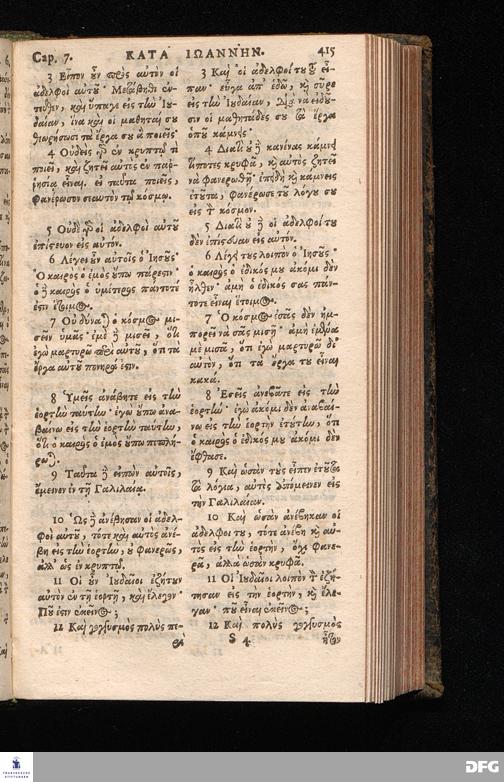 Cap. 7. ΚΑΤΑ ΙΩΑΝΝΗΝ. 415
3 Εἶπον οὖν πρὸς αὐτὸν οἱ
ἀδελφοὶ αὐτοῦ· Μετάβηθι ἐν-
τεῦθεν, καὶ ὕπαγε εἰς τὴν Ἰου-
δαίαν, ἵνα καὶ οἱ μαθηταί σου
θεωρήσωσι τὰ ἔργα σου ἃ ποιεῖς·
4 Οὐδεὶς γὰρ ἐν κρυπτῷ τὶ
ποιεῖ, καὶ ζητεῖ αὐτὸς ἐν παρ-
ρησίᾳ εἶναι. εἰ ταῦτα ποιεῖς,
φανέρωσον σεαυτὸν τῷ κόσμῳ.
5 Οὐδὲ γὰρ οἱ ἀδελφοὶ αὐτοῦ
ἐπίστευον εἰς αὐτόν.
6 Λέγει οὖν αὐτοῖς ὁ Ἰησοῦς·
Ὁ καιρὸς ὁ ἐμὸς οὔπω πάρεστιν·
ὁ δὲ καιρὸς ὁ ὑμέτερος πάντοτέ
ἐστιν ἕτοιμος.
7 Οὐ δύναται ὁ κόσμος μι-
σεῖν ὑμᾶς· ἐμὲ δὲ μισεῖ, ὅτι
ἐγὼ μαρτυρῶ περὶ αὐτοῦ, ὅτι τὰ
ἔργα αὐτοῦ πονηρά ἐστιν.
8 Ὑμεῖς ἀνάβητε εἰς τὴν
ἑορτὴν ταύτην· ἐγὼ οὔπω ἀνα-
βαίνω εἰς τὴν ἑορτὴν ταύτην,
ὅτι ὁ καιρὸς ὁ ἐμὸς οὔπω πεπλή-
ρωται.
9 Ταῦτα δὲ εἰπὼν αὐτοῖς,
ἔμεινεν ἐν τῇ Γαλιλαίᾳ.
10 Ὡς δὲ ἀνέβησαν οἱ ἀδελ-
φοὶ αὐτοῦ, τότε καὶ αὐτὸς ἀνέ-
βη εἰς τὴν ἑορτὴν, οὐ φανερῶς,
ἀλλ' ὡς ἐν κρυπτῷ.
11 Οἱ οὖν Ἰουδαῖοι ἐζήτουν
αὐτὸν ἐν τῇ ἑορτῇ, καὶ ἔλεγον·
Ποῦ ἐστιν ἐκεῖνος;
12 Καὶ γογγυσμὸς πολὺς πε-
ρὶ
3 Καὶ οἱ ἀδελφοί του τοῦ εἶ-
παν· εὔγα ἀπ' ἐδῶ, καὶ σῦρε
εἰς τὴν Ἰουδαίαν, διὰ νὰ εἰδοῦ-
σιν οἱ μαθητάδες σου τὰ ἔργα
ὁποῦ κάμνεις·
4 Διατὶ δὲν κανένας κάμνει
τίποτες κρυφὰ, καὶ αὐτὸς ζητεῖ
νὰ φανερωθῇ· ἐπειδὴ καὶ κάμνεις
ἐτοῦτα, φανέρωσε τοῦ λόγου σου
εἰς τὸν κόσμον.
5 Διατὶ οἱ ἀδελφοί του
δὲν ἐπίστευαν εἰς αὐτόν.
6 Λέγει τους λοιπὸν ὁ Ἰησοῦς·
ὁ καιρὸς ὁ ἐδικός μου ἀκόμι δὲν
ἦλθεν· ἀμὴ ὁ ἐδικός σας πάν-
τοτε εἶναι ἕτοιμος.
7 Ὁ κόσμος ἐσᾶς δὲν ἠμ-
πορεῖ νὰ σᾶς μισῇ· ἀμὴ ἐμένα
μὲ μισᾶ, ὅτι ἐγὼ μαρτυρῶ δι'
αὐτὸν, ὅτι τὰ ἔργα του εἶναι
κακά.
8 Ἐσεῖς ἀνεβᾶτε εἰς τὴν
ἑορτὴν· ἐγὼ ἀκόμι δὲν ἀναβαί-
νω εἰς τὴν ἑορτὴν ἐτούτην, ὅτι
ὁ καιρὸς ὁ ἐδικός μου ἀκόμι δὲν
ἔφθασε.
9 Καὶ ὡσὰν τοὺς εἶπεν ἐτοῦτα
τὰ λόγια, αὐτὸς ἀπόμεινεν εἰς
τὴν Γαλιλαίαν.
10 Καὶ ὡσὰν ἀνέβηκαν οἱ
ἀδελφοί του, τότε ἀνέβη καὶ αὐ-
τὸς εἰς τὴν ἑορτὴν, ὄχι φανε-
ρὰ, ἀλλὰ ὡσὰν κρυφά.
11 Οἱ Ἰουδαῖοι λοιπὸν τὸν ἐζή-
τησαν εἰς τὴν ἑορτὴν, καὶ ἔλε-
γαν· ποῦ εἶναι ἐκεῖνος;
12 Καὶ πολὺς γογγυσμὸς
S 4 ἦτον
FRANCKESCHE STIFTUNGEN
DFG